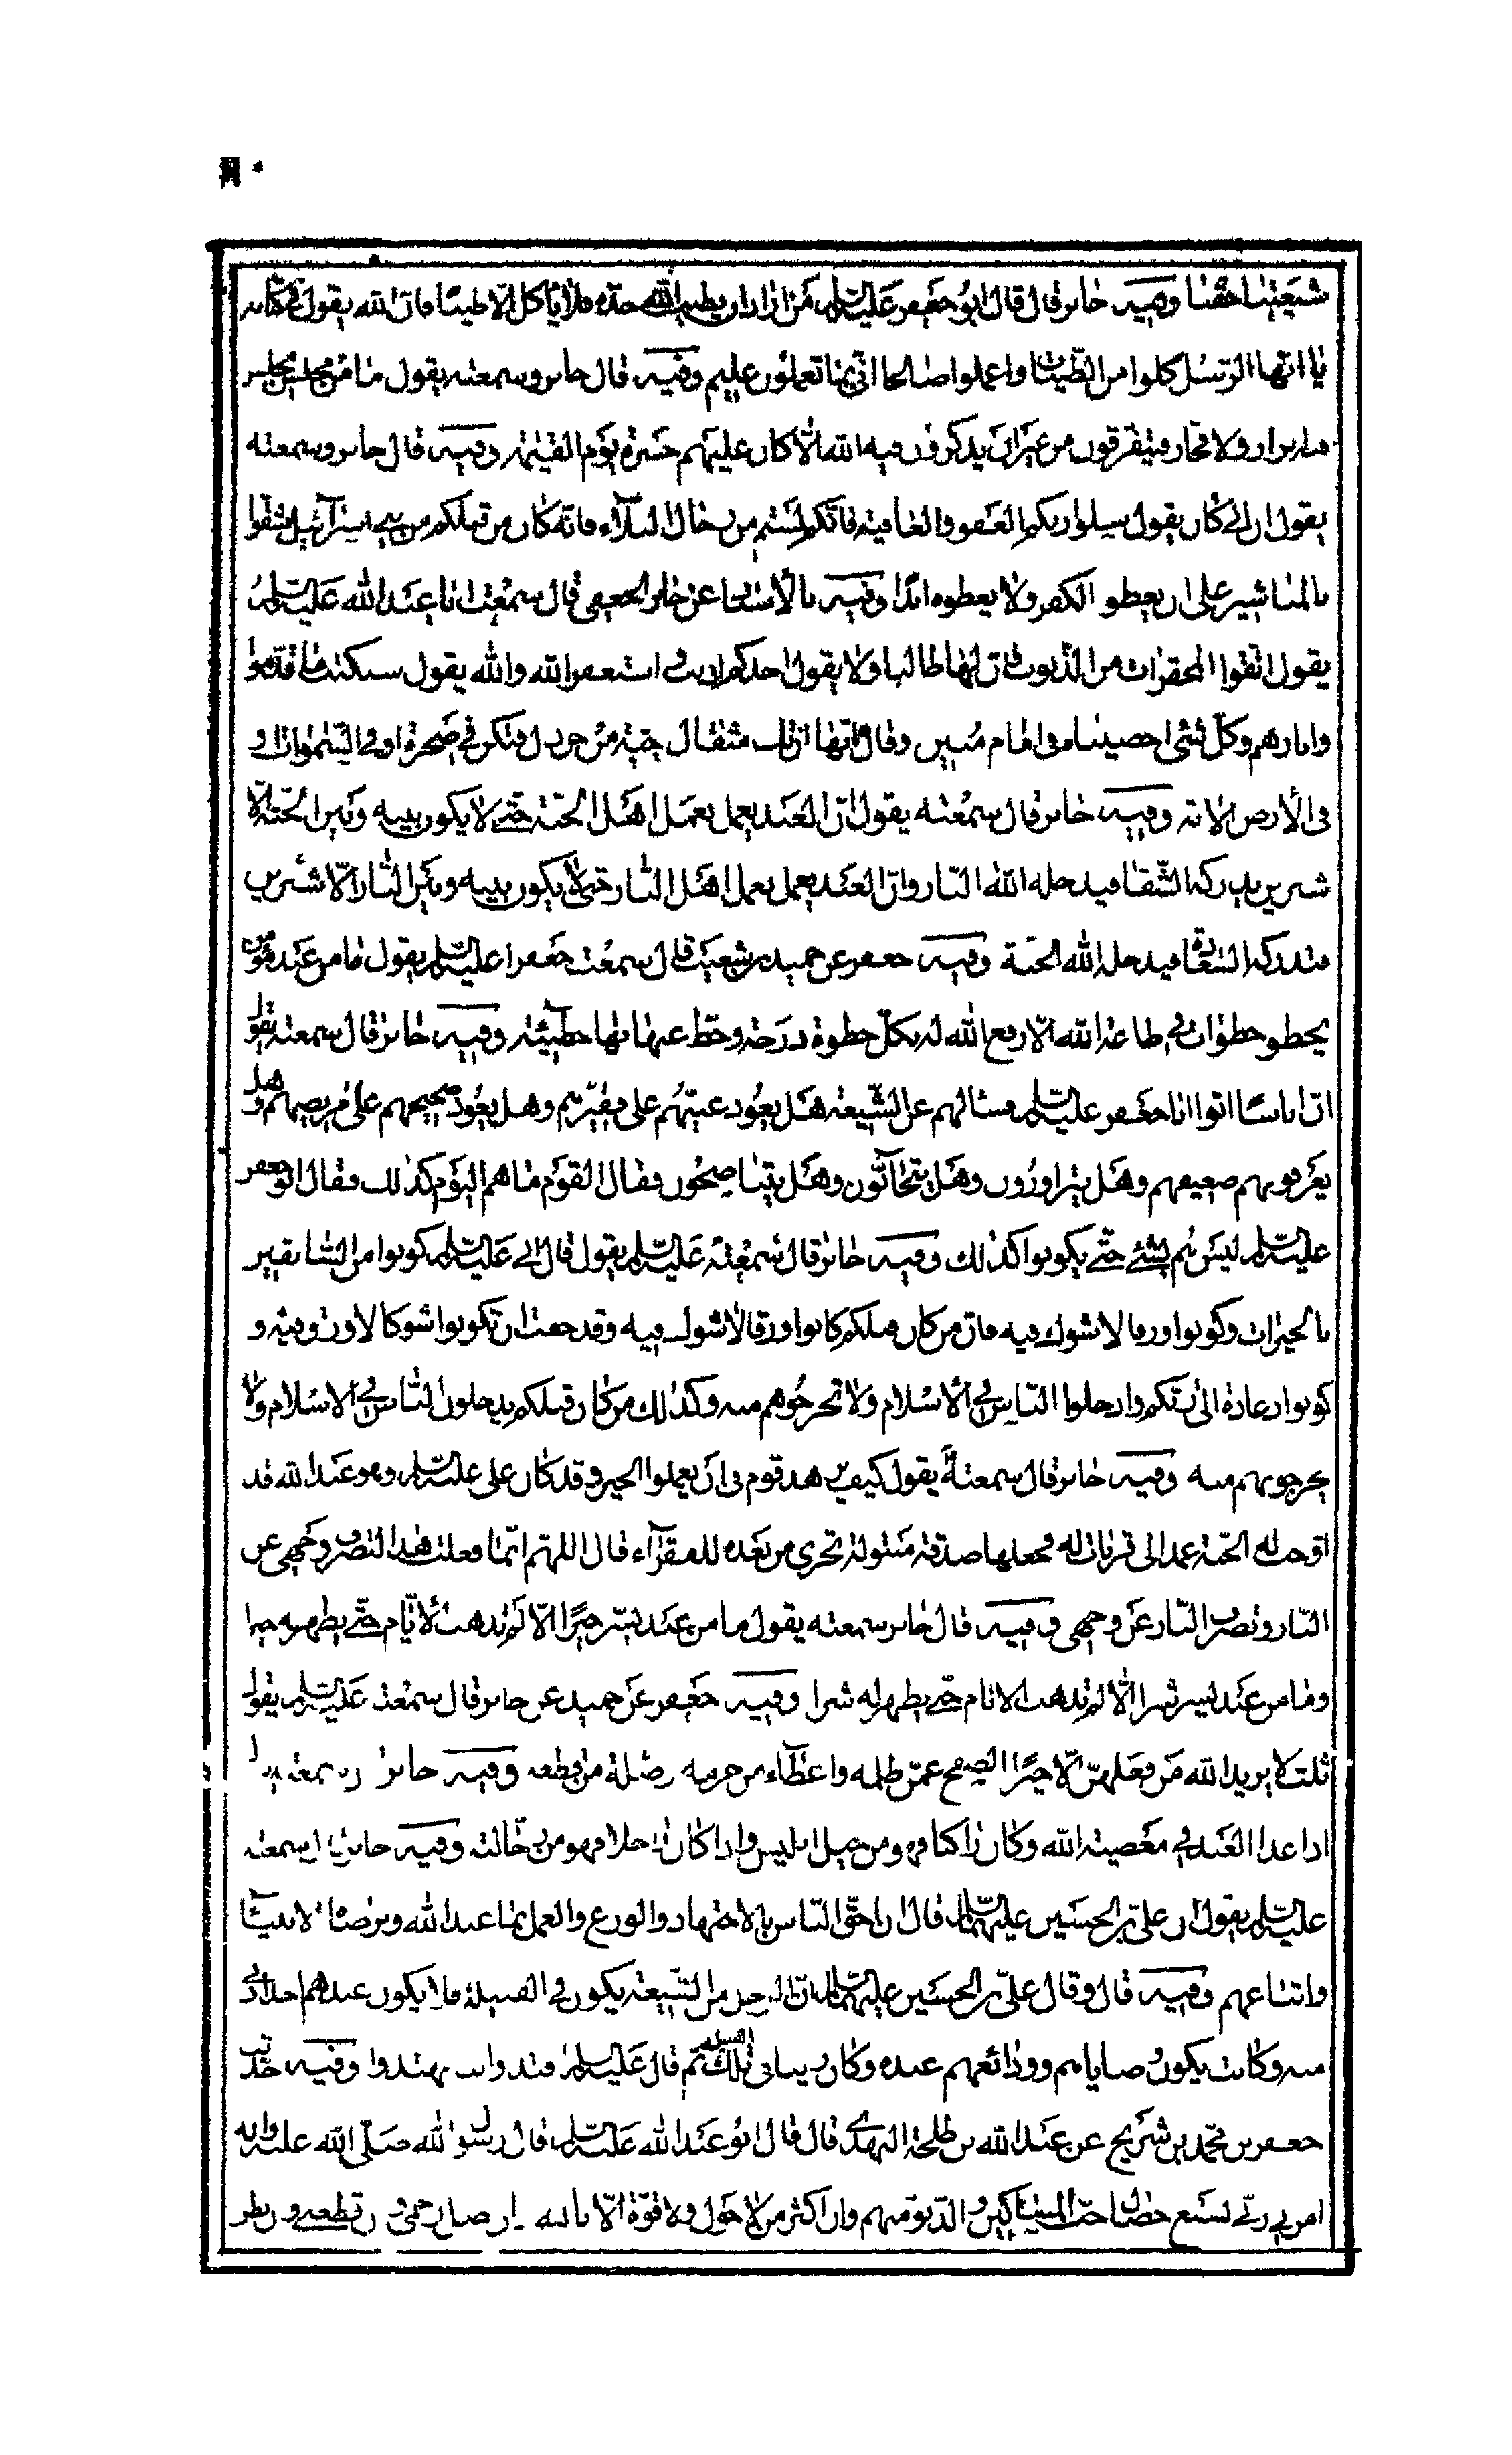 شيعتنا حقنا وفيه جابر قال قال ابو جعفر عليه السلم من اراد ان يطيب الله جلده فلا ياكل الا طيبا فان الله يقول في كتابه
يا ايها الرسل كلوا من الطيبات واعملوا صالحا اني بما تعملون عليم وفيه قال جابر وسمعته يقول ما من مجلس يجلس
فيه ابرار ولا فجار فيتفرقون من غير ان يذكرون فيه الله الا كان عليهم حسرة يوم القيمة وفيه قال جابر وسمعته
يقول ان ابي كان يقول سلوا ربكم العفو والعافية فانكم لستم من رجال البلاء فانه كان من قبلكم من بني اسرائيل شقوا
بالمناشير على ان يعطو الكفر ولا يعطوه ابدا وفيه بالاسناد عن جابر الجعفي قال سمعت ابا عبد الله عليه السلم
يقول اتقوا المحقرات من الذنوب فان لها طالبا ولا يقول احدكم اذنب و استغفر الله والله يقول سنكتب ما قدموا
واثارهم وكل شئ احصيناه في امام مبين وقال انها ان تك مثقال حبة من خردل فتكن في صخرة او في السموات او
في الارض الاية وفيه جابر قال سمعته يقول ان العبد يعمل بعمل اهل الجنة حتى لا يكون بينه وبين الجنة الا
شبرين يدركه الشقا فيدخله الله النار وان العبد يعمل بعمل اهل النار حتى لا يكون بينه وبين النار الا شبرين
فتدركه السعادة فيدخله الله الجنة وفيه جعفر عن حميد بن شعيب قال سمعت جعفرا عليه السلم يقول ما من عبد مؤمن
يخطو خطوات في طاعة الله الا رفع الله له بكل خطوة درجة وحط عنه بها خطيئة وفيه جابر قال سمعته يقول
ان اناسا اتوا ابا جعفر عليه السلم فسالهم عن الشيعة هل يعود غنيهم على فقيرهم وهل يعود صحيحهم على مريضهم وهل
يعرفونهم ضعيفهم وهل يتزاورون وهل يتحابون وهل يتناصحون فقال القوم ما هم اليوم كذلك فقال ابو جعفر
عليه السلم ليس هم بشئ حتى يكونوا كذلك وفيه جابر قال سمعته عليه السلم يقول قال ابي عليه السلم كونوا من السابقين
بالخيرات وكونوا ورقا لا شوك فيه فان من كان قبلكم كانوا ورقا لا شوك فيه وقد خفت ان تكونوا شوكا لا ورق فيه و
كونوا دعاة الى ربكم وادخلوا الناس في الاسلام ولا تخرجوهم منه وكذلك من كان قبلكم يدخلون الناس في الاسلام ولا
يخرجونهم منه وفيه جابر قال سمعته يقول كيف يزهد قوم في ان يعملوا الخير وقد كان علي عليه السلم وهو عبد الله قد
اوجب له الجنة عمد الى قربات له فجعلها صدقة مبتولة تجري من بعده للفقراء قال اللهم انما فعلت هذا لتصرف وجهي عن
النار وتصرف النار عن وجهي وفيه قال جابر سمعته يقول ما من عبد يسر خيرا الا لم تذهب الايام حتى يظهر له خيرا
وما من عبد يسر شرا الا لم تذهب الايام حتى يظهر له شرا وفيه جعفر عن حميد عن جابر قال سمعته عليه السلم يقول
ثلث لا يريد الله من فعلهن الا خيرا الصفح عمن ظلمه واعطاء من حرمه وصلة من قطعه وفيه جابر
اذا غدا العبد في معصية الله وكان راكبا فهو من خيل ابليس واذا كان راجلا فهو من رجالته وفيه جابر سمعته
عليه السلم يقول ان علي بن الحسين عليهما السلم قال ان احق الناس بالاجتهاد والورع والعمل بما عند الله ويرضا الانبيا
واتباعهم وفيه قال وقال علي بن الحسين عليهما السلم ان الرجل من الشيعة يكون في القبيلة فلا يكون عندهم احد
منه وكانت يكون وصاياهم وودائعهم عنده وكان في تلك القبيلة ثم قال عليه السلم وفيه حديث
جعفر بن محمد بن شريح عن عبد الله بن طلحة النهدي قال قال ابو عبد الله عليه السلم قال رسول الله صلى الله عليه واله
امرني ربي بسبع خصال حب المساكين والدنو منهم وان اكثر من لا حول ولا قوة الا بالله